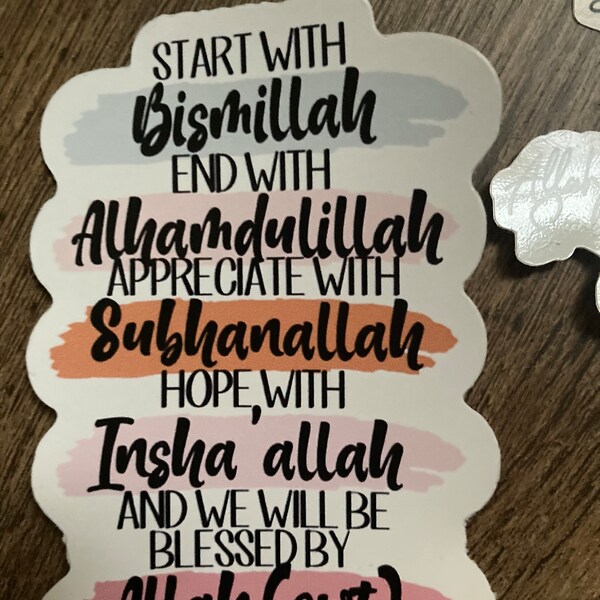 START WITH
Bismillah
END WITH
Alhamdulillah
APPRECIATE WITH
Subhanallah
HOPE WITH
Insha'allah
AND WE WILL BE
BLESSED BY
Allah (swt)